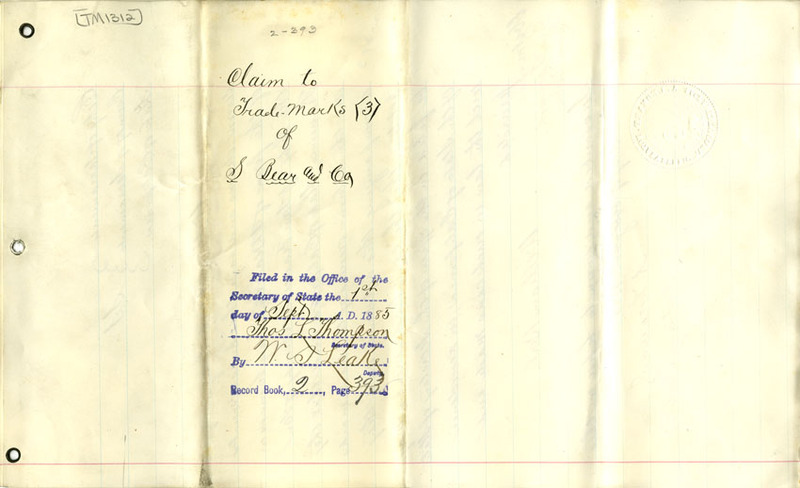 [TM1312]
2-393
Claim to
Trade-Marks (3)
of
S Bear and Co
Filed in the Office of the
Secretary of State the 1st
day of Sept A. D. 1885
Thos L Thompson
Secretary of State.
By W. T. Leake
Deputy
Record Book, 2, Page 393